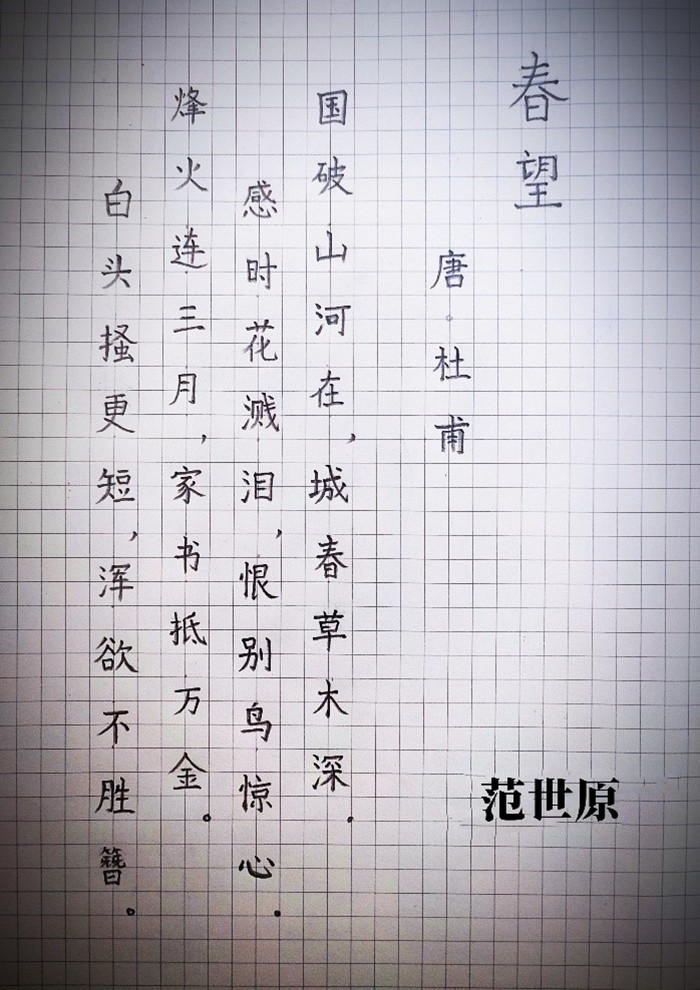 春望
唐·杜甫
国破山河在，城春草木深.
感时花溅泪，恨别鸟惊心.
烽火连三月，家书抵万金。
白头搔更短，浑欲不胜簪。
范世原